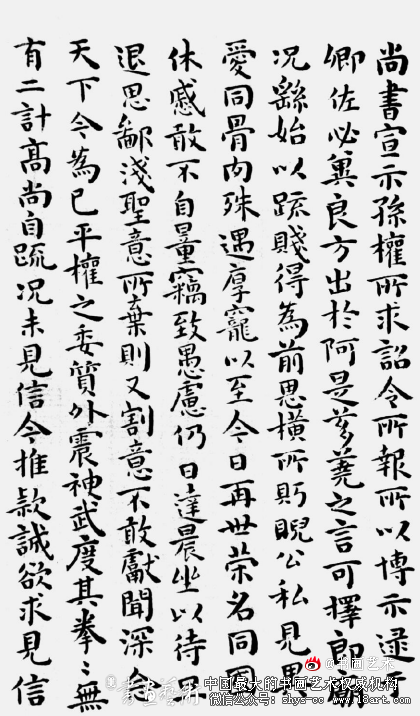 尚書宣示孫權所求詔令所報所以博示逮于
卿佐必冀良方出於阿是芻蕘之言可擇郎廟
況繇始以疏賤得為前恩橫所眄睨公私見異
愛同骨肉殊遇厚寵以至今日再世榮名同國
休慼敢不自量竊致愚慮仍日達晨坐以待旦
退思鄙淺聖意所棄則又割意不敢獻聞深念
天下今為已平權之委質外震神武度其拳〻無
有二計高尚自疏況未見信今推款誠欲求見信
@书画艺术
中国最大的书画艺术权威机构
微信公众号：shys-cc